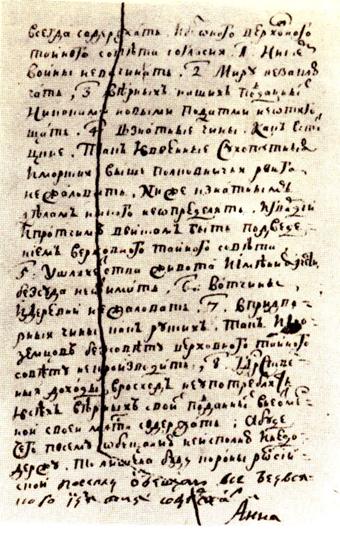 всегда содержать. И безоного верховного
тайного совѣта согласия 1. Нискѣмъ
воины невсчинать. 2 Миру незаклю
чать, 3 вѣрныхъ нашихъ подданныхъ
никакими новыми податми неотяго
щать. 4. Взнатные чины. Какъ встат
цкие. Такъ ивоенные Сухопутныя
Иморския выше полковничья ранга
нежаловать. Ниже кзнатнымъ
дѣламъ никого неопределять. Игвардии
Ипротчимъ полкамъ быть подведе
ниемъ верховного тайного совѣта
5 Ушляхетства живота Иимѣния и чести
безсуда неотымать. 6. Вотчины,
Идеревни нежаловать. 7. Впридво-
рные чины какъ рускихъ. Такъ Ино-
земцовъ безсовѣту верховного тайного
совѣта непроизводить, 8. Государстве-
ные доходы врасходъ неупотреблять
Ивсѣхъ вѣрныхъ своихъ подданныхъ внеотмѣ-
ной своей милости содержать; Абуде
чего посему обѣщанию неисполню Инедо
держу. То лишена буду короны россий-
ской посему обещаюсь все безвся-
кого изъятия содержать
Анна